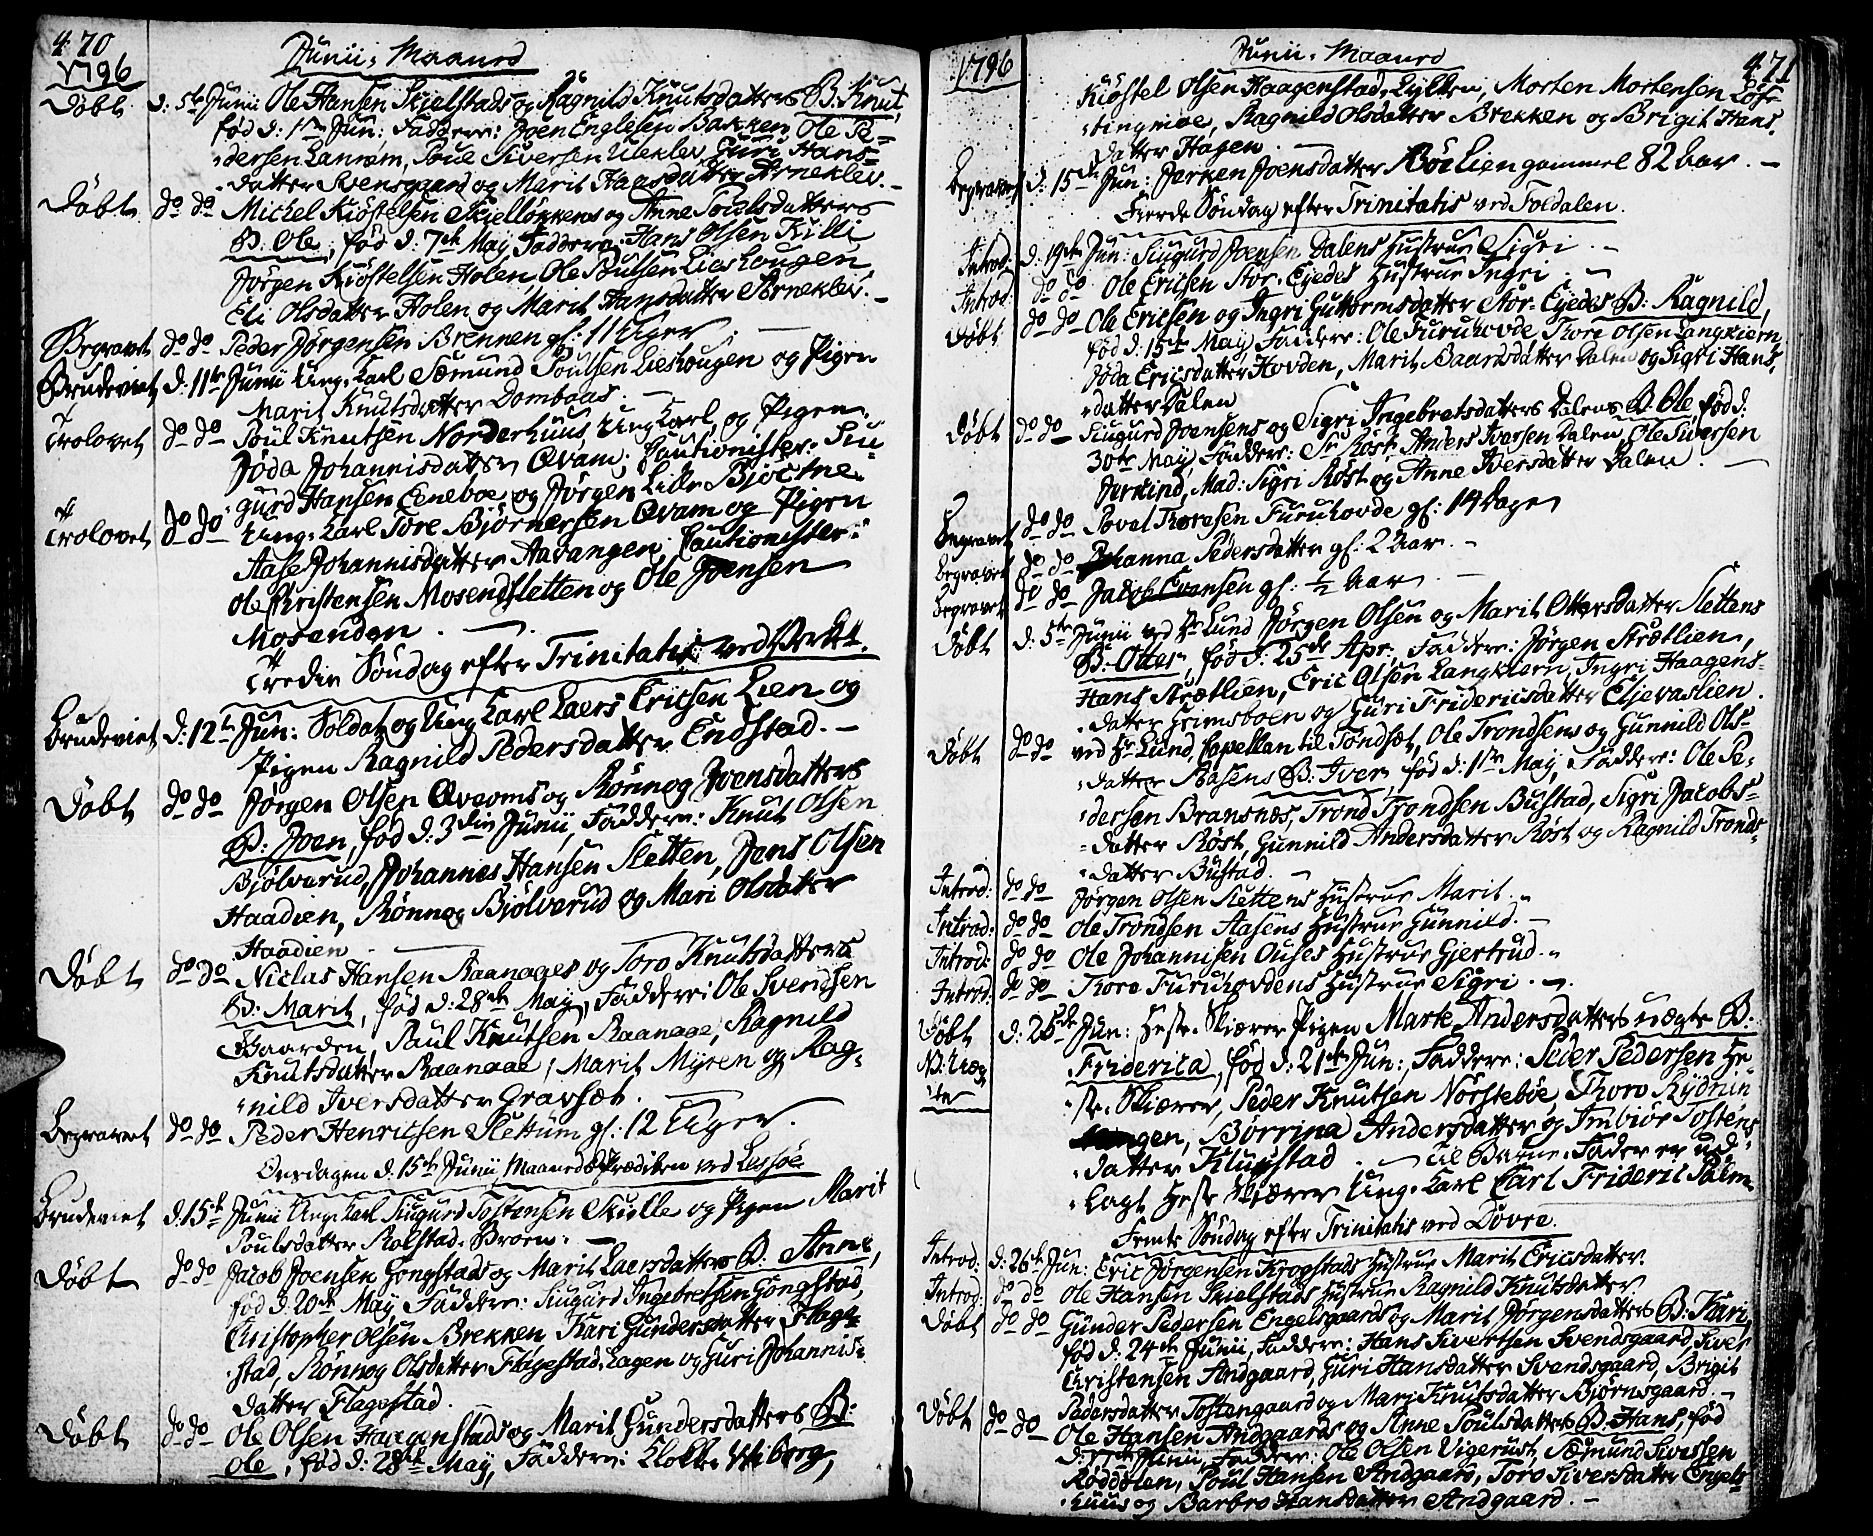 470
1796
Junii Maaned
Døbt d: 5te Junii Ole Hansen Skielstads og Ragnild Knutsdatters B: Knut,
fød d: 1ste Jun: Faddere: Joen Englesen Bakken, Ole Pe-
dersen Lannem, Poul Siversen Uleklev, Guri Hans-
datter Svensgaard og Marit Haagsdatter Arneklev. -
Døbt do do Michel Kiøstelsen Skielløkkens og Anne Poulsdatters
B: Ole, fød d: 7de May, Faddere: Hans Olsen Killi
Jørgen Kiøstelsen Holen, Ole Poulsen Lieshougen
Eli Olsdatter Holen og Marit Hansdatter Arneklev. -
Begravet do do Peder Jørgensen Brennen gl: 11 Uger. -
Brudeviet d: 11te Junii Ung-Karl Sæmund Poulsen Lieshougen og Pigen
Marit Knutsdatter Dombaas. -
Trolovet do do Poul Knutsen Norderhuus Ung Karl og Pigen
Jøda Johannisdatter Qvam. Cautionister: Siu-
gurd Hansen Eeneboe og Jørgen Lille Bjochne
Trolovet do do Ung-Karl Tore Bjørnersen Qvam og Pigen
Aase Johannisdatter Aavangen, Cautionister:
Ole Christensen Mosendsletten og Ole Joensen
Mosenden. -
Tredie Søndag efter Trinitatis ved Værket.
Brudeviet d: 12te Jun: Soldat og Ung Karl Laers Ericsen Lien og
Pigen Ragnild Pedersdatter Endstad. -
Døbt do do Jørgen Olsen Qvams og Rønnog Joensdatters
B: Joen, fød d: 3die Junii, Faddere: Knut Olsen
Bjølverud, Johannes Hansen Sletten, Jens Olsen
Haadien, Rønnog Bjølverud og Mari Olsdatter
Haadien. -
Døbt do do Niclas Hansen Raanages og Toro Knutsdatters
B: Marit, fød d: 28de May, Faddere: Ole Svendsen
Gaarden, Paul Knutsen Raanaae, Ragnild
Knutsdatter Raanaae, Marit Myren og Rag-
nild Iversdatter Gravsæt. -
Begravet do do Peder Henricsen Slettum gl: 12 Uger.
Onsdagen d: 15de Junii Maaneds Prædiken ved Lessøe
Brudeviet d: 15de Junii Ung Karl Siugurd Tostensen Skielle og Pigen Marit
Poulsdatter Rolstad-Broen. -
Døbt do do Jacob Joensen Gongstads og Marit Laersdatters B: Anne,
fød d: 20de May, Faddere: Siugurd Ingebretsen Gongstad,
Christopher Olsen Brekken, Kari Gundersdatter Flage-
stad, Rønnog Olsdatter Flagestad-Hagen og Guri Johannis-
datter Flagestad.
Døbt do do Ole Olsen Haagenstads og Marit Gundersdatters B:
Ole, fød d: 28de May, Faddere: Klokker Wiborg,
1796
Junii Maaned
471
Kiøstel Olsen Haagenstad-Lykken, Morten Mortensen Løf-
tingmoe, Ragnild Olsdatter Brekken og Brigit Hans-
datter Hagen. -
Begravet d: 15de Jun: Jerken Joensdatter Bøe Lien gammel 82 Aar. -
Fierde Søndag efter Trinitatis ved Foldalen.
Introd: d: 19de Jun: Siugurd Joensen Dalens Hustrue Sigri. -
Introd: do do Ole Ericsen Stor-Eggedes Hustrue Ingri. -
Døbt do do Ole Ericsen og Ingri Guttormsdatter Stor-Eggedes B: Ragnild,
fød d: 15de May, Faddere: Ole Furuhovde, Thore Olsen Langkiern,
Jøda Ericsdatter Hovden, Marit Baardsdatter Dalen og Sigri Hans-
datter Dalen
Døbt do do Siugurd Joensens og Sigri Ingebretsdatters Dalens B: Ole fød d:
30te May Faddere: Sr Røst, Anders Iversen Dalen, Ole Siversen
Jerkind, Mad: Sigri Røst og Anne Iversdatter Dalen. -
Begravet do do Povel Thoresen Furuhovde gl: 14 Dage
Begravet do do Johanna Pedersdatter gl: 2 Aar. -
Begravet do do Jacob Evensen gl: ½ Aar. -
Døbt d: 5te Junii ved Hr Lund Jørgen Olsen og Marit Ottersdatter Slettens
B: Otter, fød d: 25de Apr: Faddere: Jørgen Strætlien,
Hans Strætlien, Eric Olsen Langkiern, Ingri Haagens-
datter Grimsboen og Guri Fridericsdatter Elsevaslien.
Døbt do do ved Hr Lund, Capellan til Tøndsæt, Ole Trondsens og Gunnild Ols-
datter Aasens B: Iver, fød d: 1ste May, Faddere: Ole Pe-
dersen Bransnæs, Trond Trondsen Bustad, Sigri Jacobs-
datter Røst, Gunnild Andersdatter Røst og Ragnild Tronds-
datter Bustad. -
Introd: do do Jørgen Olsen Slettens Hustrue Marit. -
Introd: do do Ole Trondsen Aasens Hustrue Gunnild. -
Introd: do do Ole Johannisen Ouses Hustrue Gjertrud. -
Introd: do do Thore Furuhovdens Hustrue Sigri. -
Døbt d: 26de Jun: Heste-Skiærer Pigen Marte Andersdatters uægte B:
N: Uæg-
te Friderica, fød d: 21de Jun: Faddere: Peder Pedersen He-
ste-Skiærer, Peder Knutsen Nørstebøe Thoro Rydnin-
gen, Borrina Andersdatter og Imbiør Tostens-
datter Klugstad. - Til Barne-Fader er ud-
lagt Heste Skiærer Ung-Karl Carl Frideric Palm
Femte Søndag efter Trinitatis ved Dovre.
Introd: d: 26de Jun: Eric Jørgensen Krogstads Hustrue Marit Ericsdatter.
Introd: do do Ole Hansen Skielstads Hustrue Ragnild Knutsdatter
Døbt do do Gunder Pedersen Engelsgaards og Marit Jørgensdatters B: Kari,
fød d: 24de Junii, Faddere: Hans Sivertsen Svendsgaard, Siver
Christensen Andgaard, Guri Hansdatter Svendsgaard, Brigit
Pedersdatter Tostengaard og Mari Knutsdatter Bjørnsgaard. -
Døbt do do Ole Hansen Andgaards og Anne Poulsdatters B: Hans, fød
Junii, Faddere: Ole Olsen Vigerust, Sæmund Siversen
Røddølen, Poul Hansen Andgaard, Toro Siversdatter Engels-
huus og Barbro Hansdatter Andgaard. -